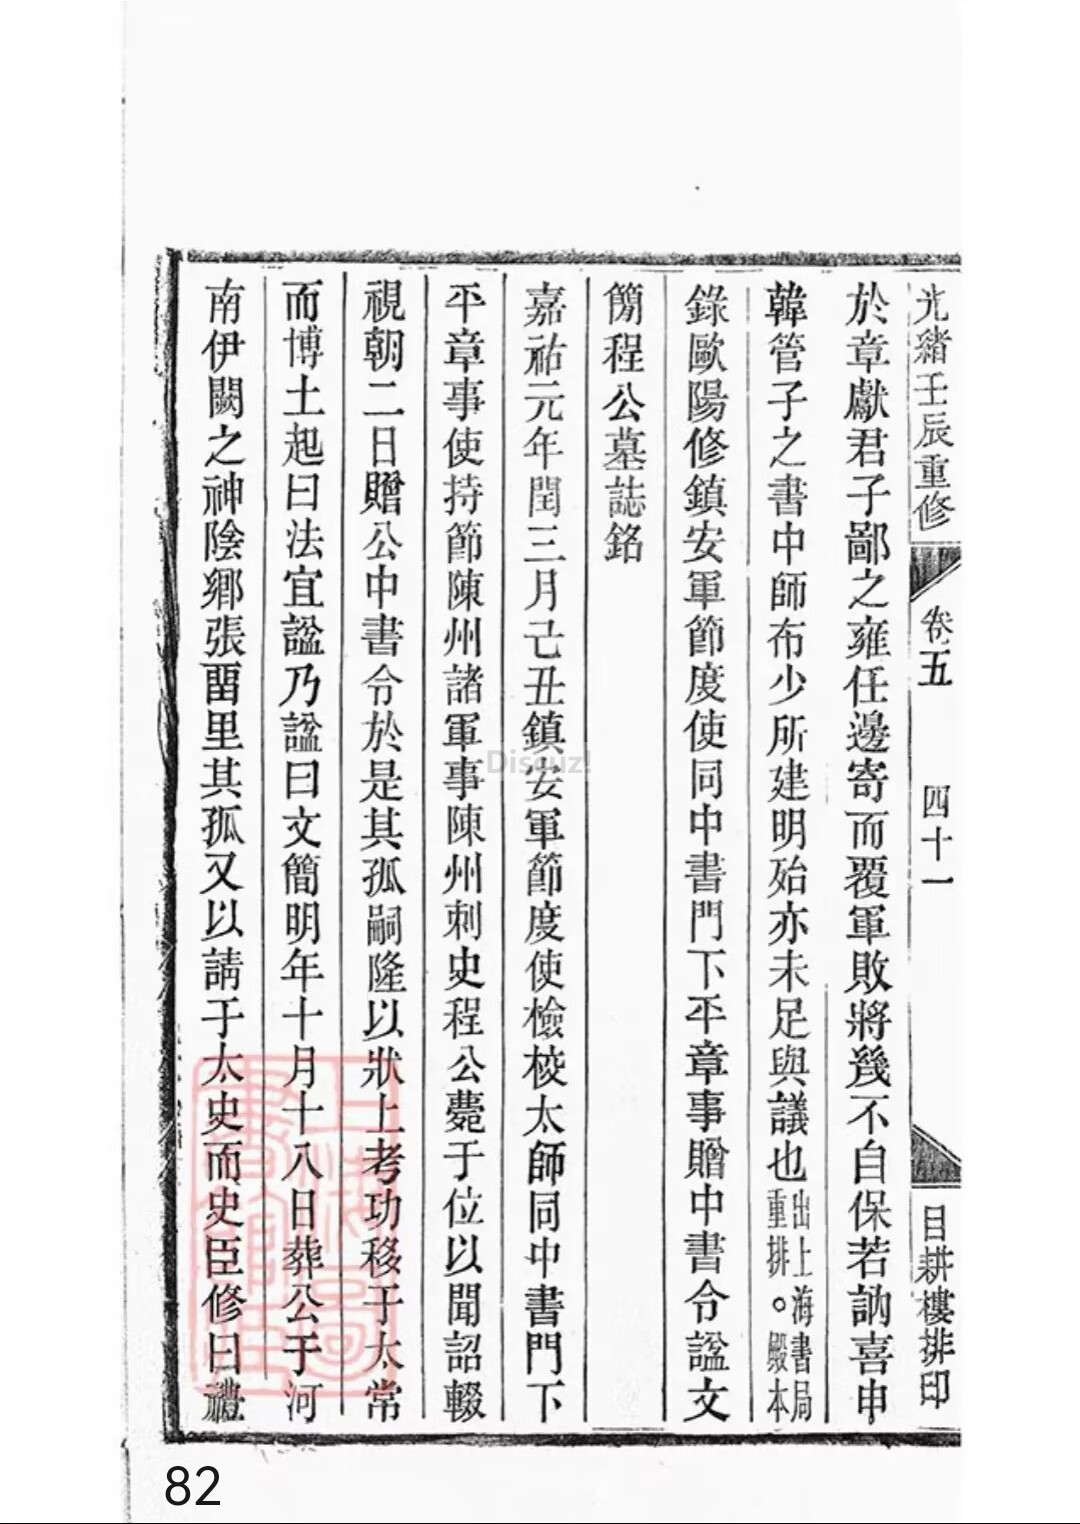 光緒壬辰重修 卷五 四十一 目耕樓排印
於章獻君子鄙之雍任邊寄而覆軍敗將幾不自保若訥喜申
韓管子之書中師布少所建明殆亦未足與議也出上海書局重排。殿本
錄歐陽修鎮安軍節度使同中書門下平章事贈中書令諡文
簡程公墓誌銘
嘉祐元年閏三月己丑鎮安軍節度使檢校太師同中書門下
平章事使持節陳州諸軍事陳州刺史程公薨于位以聞詔輟
視朝二日贈公中書令於是其孤嗣隆以狀上考功移于太常
而博士起曰法宜諡乃諡曰文簡明年十月十八日葬公于河
南伊闕之神陰鄉張畱里其孤又以請于太史而史臣修曰禮
上海圖書館藏
Discuz!
82